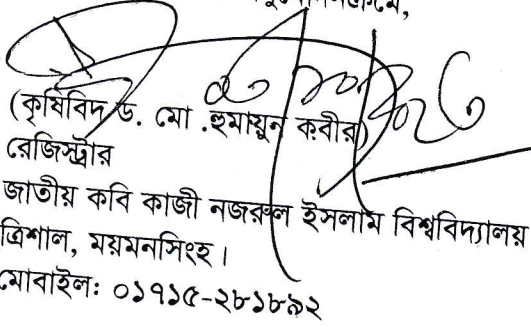 (কৃষিবিদ ড. মো .হুমায়ুন কবীর)
রেজিস্ট্রার
জাতীয় কবি কাজী নজরুল ইসলাম বিশ্ববিদ্যালয়
ত্রিশাল, ময়মনসিংহ।
মোবাইলঃ ০১৭১৫-২৮১৮৯২